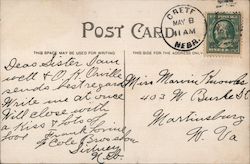 CRETE
MAY 8
11 AM
NEBR.
POST CARD
THIS SPACE MAY BE USED FOR WRITING
THIS SIDE FOR THE ADDRESS
Dear Sister I am
well & O.K. Orville
sends best regards
Write me at once
Will close with
a kiss & lots of
love Frank
Miss Marvin Knowles
403 W. Burke St
Martinsburg
W. Va